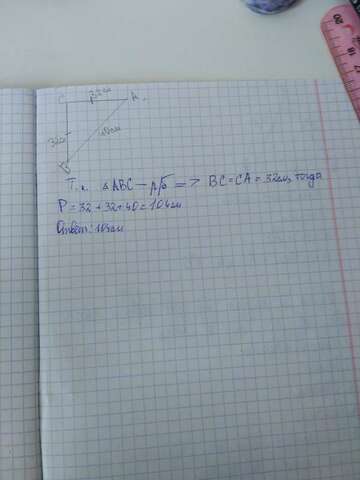 C 32см A
32см 40см
B
Т.к. △ABC – р/б => BC = CA = 32см, тогда
P = 32 + 32 + 40 = 104см
Ответ: 104см